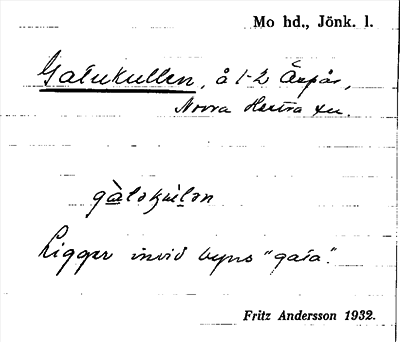 Mo hd., Jönk. l.
Gatukullen, å 1-2 Äspås,
Norra Hestra sn.
Ligger invid byns "gata".
Fritz Andersson 1932.